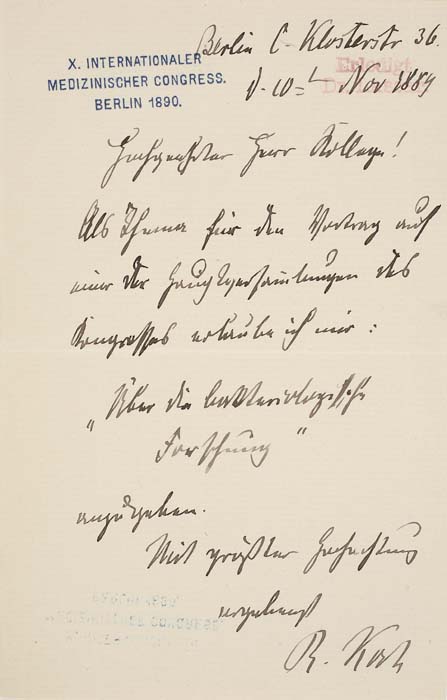 X. INTERNATIONALER
MEDIZINISCHER CONGRESS.
BERLIN 1890.
Berlin C. Klosterstr 36.
Erledigt
d. 10t Nov 1889
Hochgeehrter Herr Kollege!
Als Thema für den Vortrag auf
einer der Hauptversamlungen des
Kongresses erlaube ich mir:
„Über die bakteriologische
Forschung"
anzugeben.
Mit größter Hochachtung
ergebenst
R. Koch